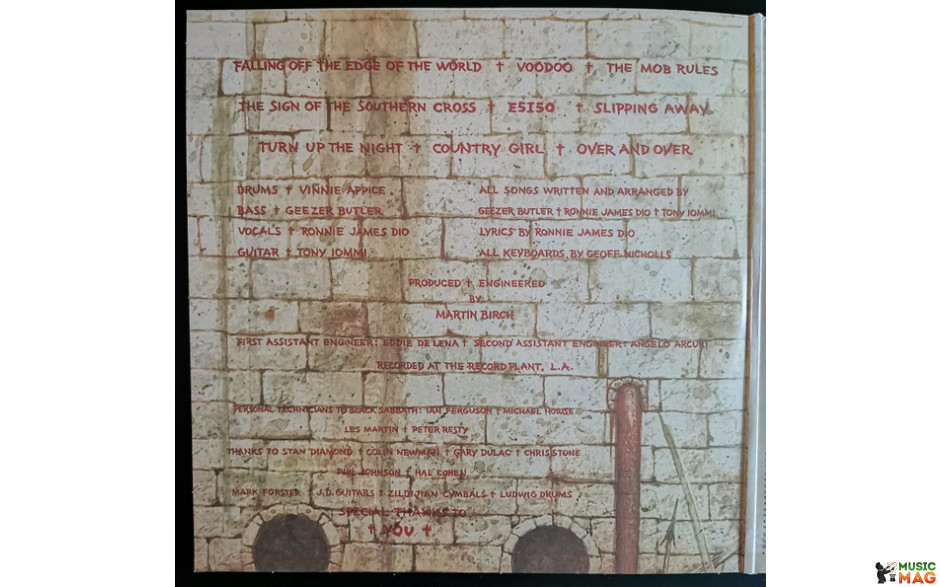 FALLING OFF THE EDGE OF THE WORLD † VOODOO † THE MOB RULES
THE SIGN OF THE SOUTHERN CROSS † E5150 † SLIPPING AWAY
TURN UP THE NIGHT † COUNTRY GIRL † OVER AND OVER
DRUMS † VINNIE APPICE
BASS † GEEZER BUTLER
VOCALS † RONNIE JAMES DIO
GUITAR † TONY IOMMI
ALL SONGS WRITTEN AND ARRANGED BY
GEEZER BUTLER † RONNIE JAMES DIO † TONY IOMMI
LYRICS BY RONNIE JAMES DIO
ALL KEYBOARDS BY GEOFF NICHOLLS
PRODUCED † ENGINEERED
BY
MARTIN BIRCH
FIRST ASSISTANT ENGINEER: EDDIE DE LENA † SECOND ASSISTANT ENGINEER: ANGELO ARCURI
RECORDED AT THE RECORD PLANT, L.A.
PERSONAL TECHNICIANS TO BLACK SABBATH: IAN FERGUSON † MICHAEL HOWSE
LES MARTIN † PETER RESTY
THANKS TO STAN DIAMOND † COLIN NEWMAN † GARY DULAC † CHRIS STONE
PAUL JOHNSON † HAL COHEN
MARK FORSTER † J.D. GUITARS † ZILDJIAN CYMBALS † LUDWIG DRUMS
SPECIAL THANKS TO
† YOU †
MUSIC
MAG